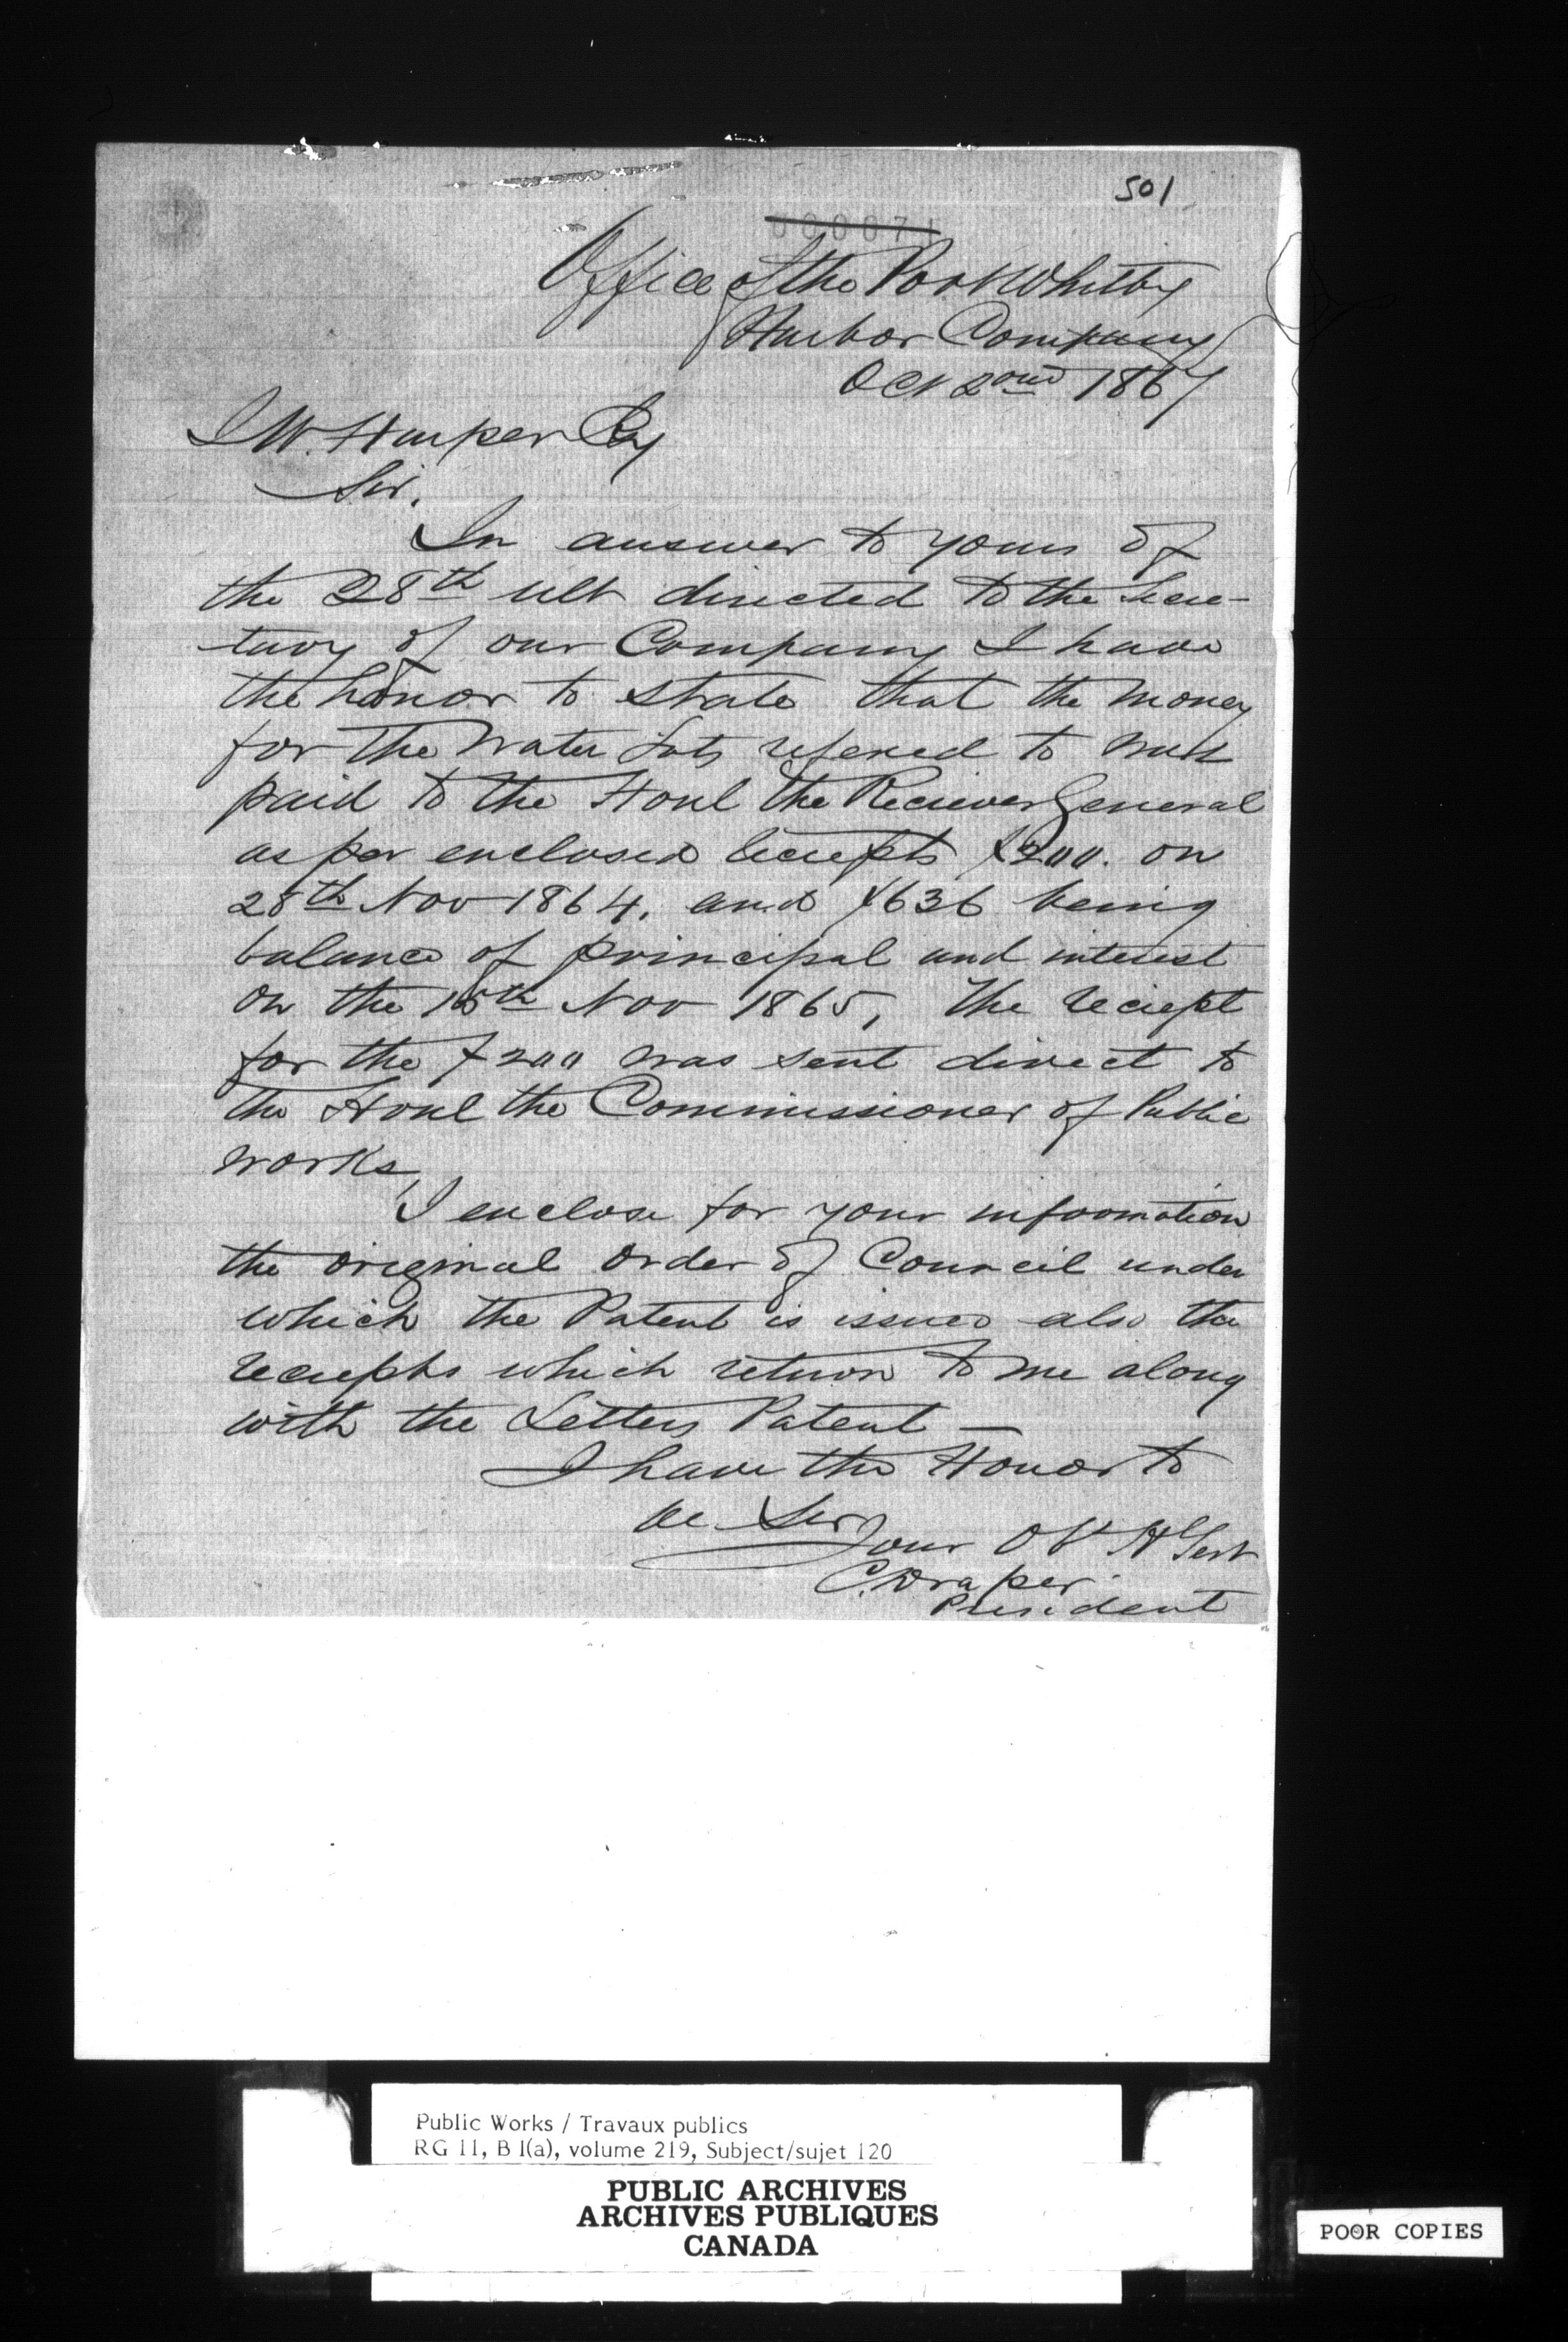 501
Office of the Port Whitby
Harbor Company
Oct 2ond 1867
J W. Harper Esq
Sir,
In answer to yours of
the 28th ult directed to the Secre-
tary of our Company I have
the honor to state that the money
for the Water Lots refered to was
paid to the Honl the Reciever General
as per enclosed reciepts $200. on
28th Nov 1864, and $636 being
balance of principal and interest
on the 15th Nov 1865, The reciept
for the $200 was sent direct to
the Honl the Commissioner of Public
works,
I enclose for your information
the original order of Council under
which the Patent is issued also the
reciepts which return to me along
with the Letters Patent —
I have the Honor to
be Sir
Your Ob H Servt
C. Draper
President
Public Works / Travaux publics
RG 11, B 1(a), volume 219, Subject/sujet 120
PUBLIC ARCHIVES
ARCHIVES PUBLIQUES
CANADA
POOR COPIES